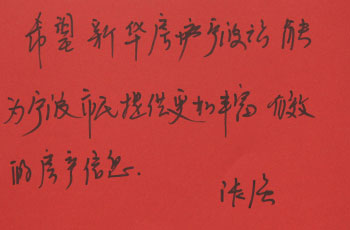 希望新华房产宁波站能
为宁波市民提供更加丰富有效
的房产信息.